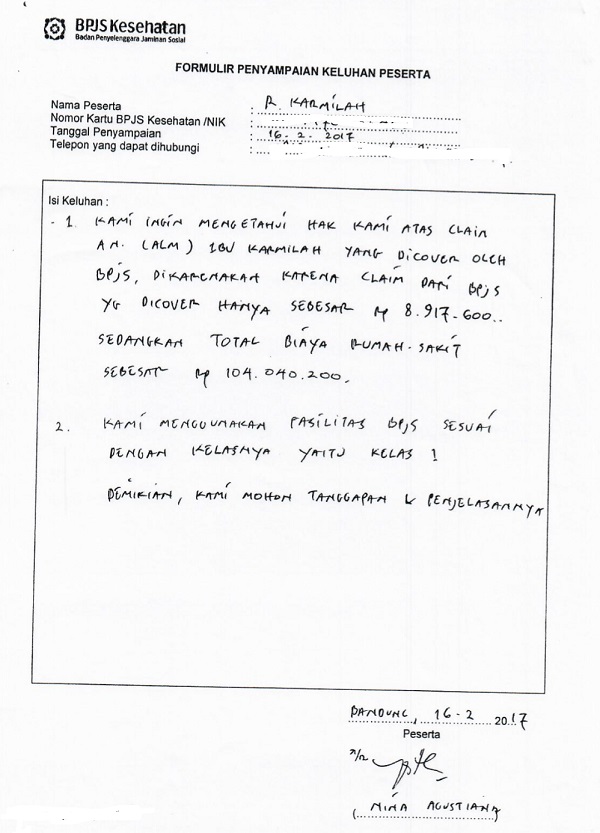 BPJS Kesehatan
Badan Penyelenggara Jaminan Sosial
FORMULIR PENYAMPAIAN KELUHAN PESERTA
Nama Peserta : R. KARMILAH
Nomor Kartu BPJS Kesehatan /NIK :
Tanggal Penyampaian : 16-2-2017
Telepon yang dapat dihubungi :
Isi Keluhan :
- 1. KAMI INGIN MENGETAHUI HAK KAMI ATAS CLAIM
AN. (ALM) IBU KARMILAH YANG DICOVER OLEH
BPJS, DIKARENAKAN KARENA CLAIM DARI BPJS
YG DICOVER HANYA SEBESAR Rp 8.917.600..
SEDANGKAN TOTAL BIAYA RUMAH-SAKIT
SEBESAR Rp 104.040.200.
2. KAMI MENGGUNAKAN FASILITAS BPJS SESUAI
DENGAN KELASNYA YAITU KELAS 1
DEMIKIAN, KAMI MOHON TANGGAPAN & PENJELASANNYA
BANDUNG, 16-2 2017
Peserta
(NINA AGUSTIANA)